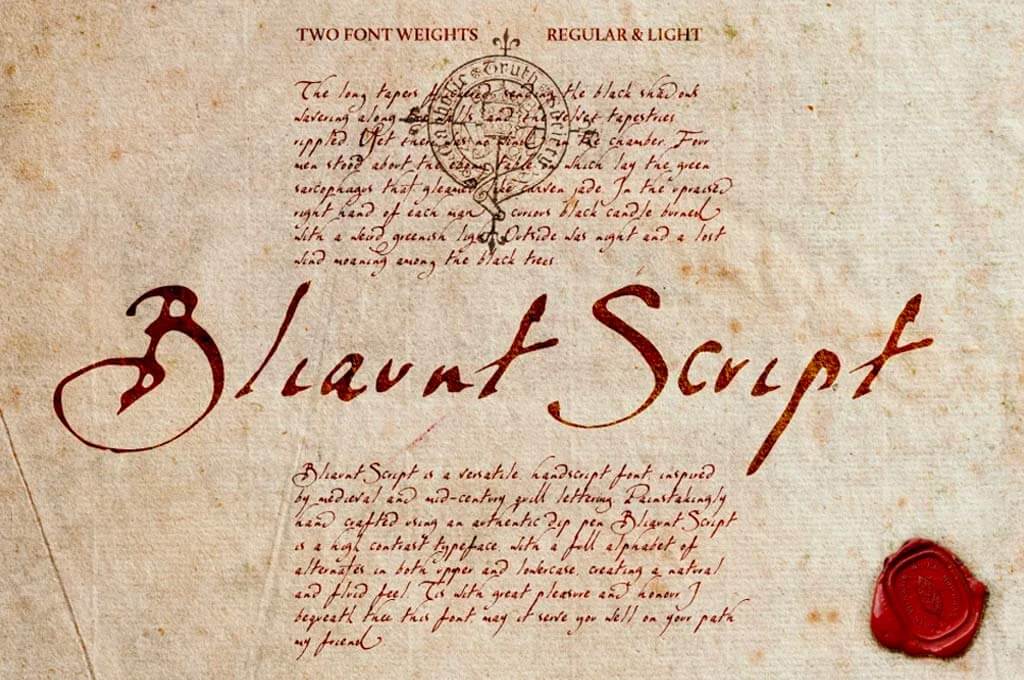 TWO FONT WEIGHTS REGULAR & LIGHT
The long tapers flickered, sending the black shadows
wavering along the walls and the velvet tapestries
rippled. Yet there was no wind in the chamber. Four
men stood about the ebony table on which lay the green
sarcophagus that gleamed like carven jade. In the upraised
right hand of each man a curious black candle burned
with a weird greenish light. Outside was night and a lost
wind moaning among the black trees.
Catholic Truth Society
Bliaunt Script
Bliaunt Script is a versatile, handscript font, inspired
by medieval and mid-century quill lettering. Painstakingly
hand crafted using an authentic dip pen Bliaunt Script
is a high contrast typeface, with a full alphabet of
alternates in both upper and lowercase, creating a natural
and fluid feel. Tis with great pleasure and honour I
bequeath thee this font, may it serve you well on your path
my friend